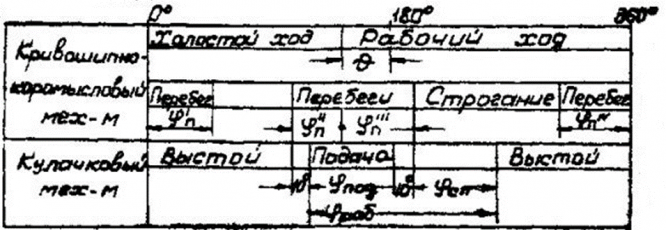 0° 180° 360°
Кривошипно-
коромысловый
мех-м
Холостой ход Рабочий ход
θ
Перебег Перебеги Строгание Перебег
φ'п φ''п φ'''п φпIV
Кулачковый
мех-м
Выстой Подача Выстой
10° φпод 10° φсп
φраб